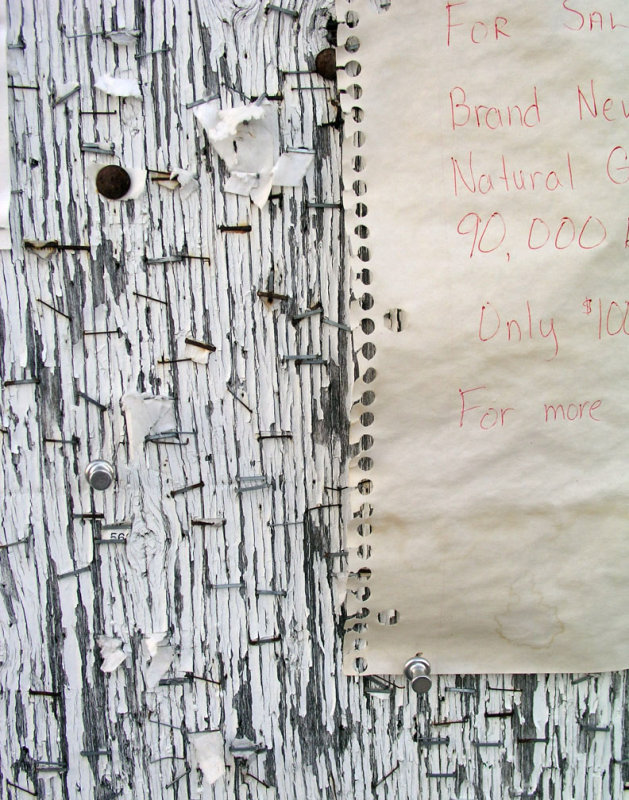 For Sal
Brand New
Natural G
90,000
Only $100
For more
56